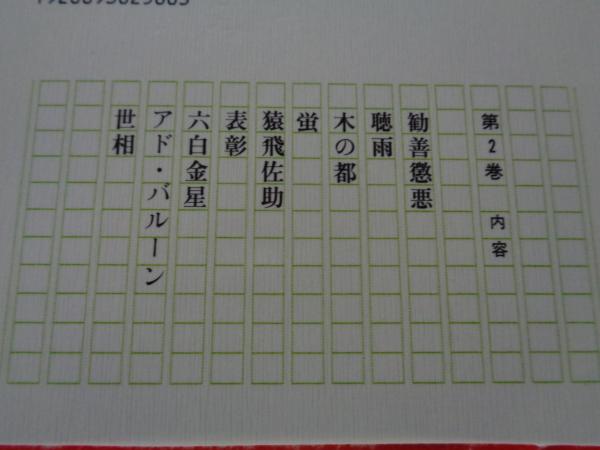 第2巻 内容
勧善懲悪
聴雨
木の都
蛍
猿飛佐助
表彰
六白金星
アド・バルーン
世相